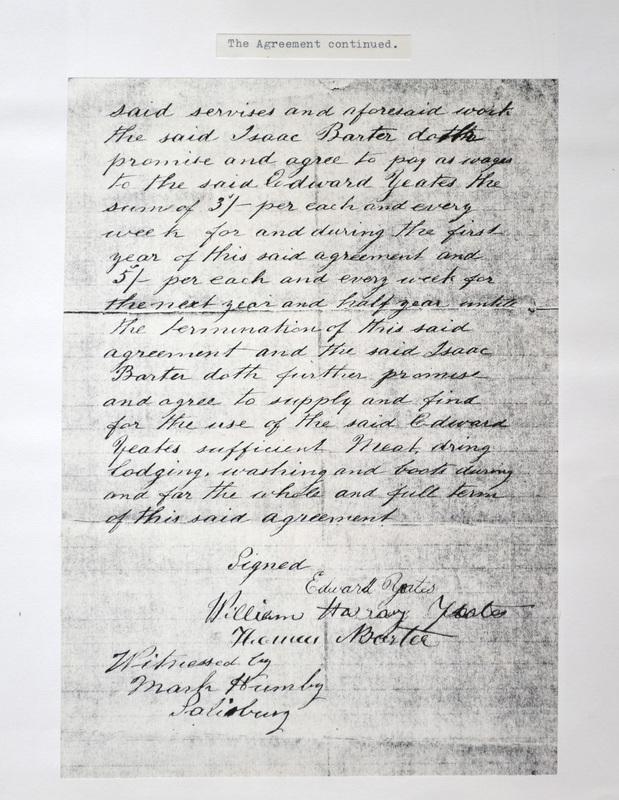 The Agreement continued.
said servises and aforesaid work
the said Isaac Barter doth
promise and agree to pay as wages
to the said Edward Yeates the
sum of 3/- per each and every
week for and during the first
year of this said agreement and
5/- per each and every week for
the next year and half year until
the termination of this said
agreement and the said Isaac
Barter doth further promise
and agree to supply and find
for the use of the said Edward
Yeates sufficient Meat, dring
lodging, washing and boots during
and for the whole and full term
of this said agreement
Signed
Edward Yeates
William Harry Yeates
Barter
Witnessed by
Mark Humby
Salisbury